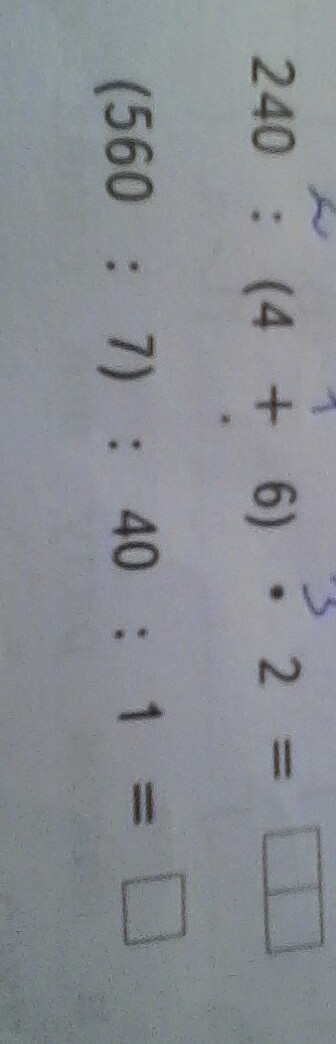 2 1 3
240 : (4 + 6) • 2 =
(560 : 7) : 40 : 1 =